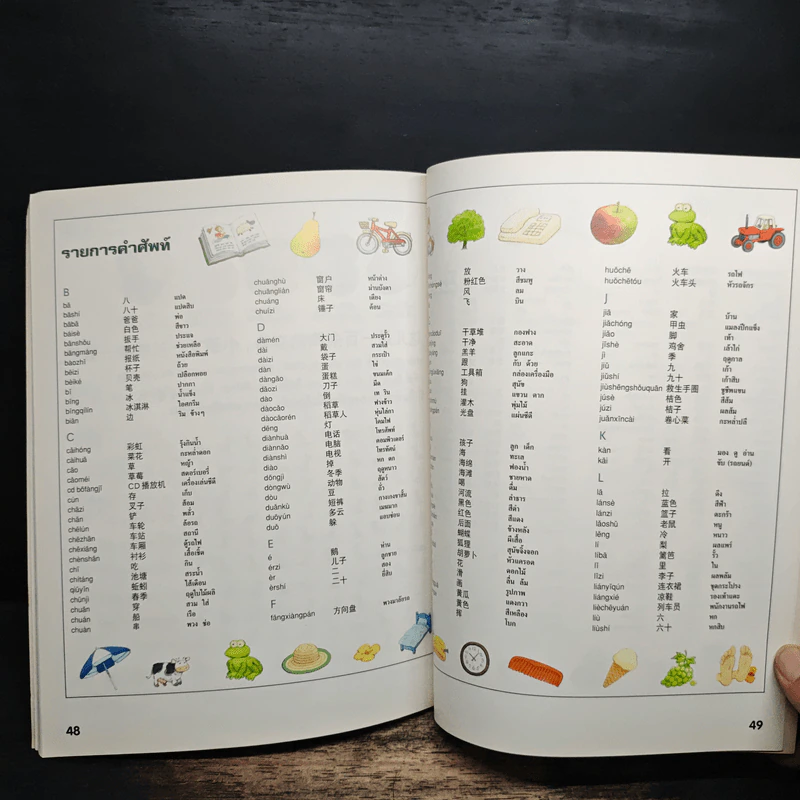 รายการคำศัพท์
B
bā 八 แปด
bāshí 八十 แปดสิบ
bàba 爸爸 พ่อ
báisè 白色 สีขาว
bānshǒu 扳手 ประแจ
bāngmáng 帮忙 ช่วยเหลือ
bàozhǐ 报纸 หนังสือพิมพ์
bēizi 杯子 ถ้วย
bèiké 贝壳 เปลือกหอย
bǐ 笔 ปากกา
bīng 冰 น้ำแข็ง
bīngqilín 冰淇淋 ไอศกรีม
biān 边 ริม ข้างๆ
C
cǎihóng 彩虹 รุ้งกินน้ำ
càihuā 菜花 กะหล่ำดอก
cǎo 草 หญ้า
cǎoméi 草莓 สตอร์เบอรี่
cd bōfàngjī CD播放机 เครื่องเล่นซีดี
cún 存 เก็บ
chāzi 叉子 ส้อม
chǎn 铲 พลั่ว
chēlún 车轮 ล้อรถ
chēzhàn 车站 สถานี
chēxiāng 车厢 ตู้รถไฟ
chènshān 衬衫 เสื้อเชิ้ต
chī 吃 กิน
chítáng 池塘 สระน้ำ
qiūyǐn 蚯蚓 ไส้เดือน
chūnjì 春季 ฤดูใบไม้ผลิ
chuān 穿 สวม ใส่
chuán 船 เรือ
chuàn 串 พวง ช่อ
chuānghù 窗户 หน้าต่าง
chuānglián 窗帘 ม่านบังตา
chuáng 床 เตียง
chuízi 锤子 ค้อน
D
dàmén 大门 ประตูรั้ว
dài 戴 สวมใส่
dàizi 袋子 กระเป๋า
dàn 蛋 ไข่
dàngāo 蛋糕 ขนมเค้ก
dāozi 刀子 มีด
dào 倒 เท ริน
dàocǎo 稻草 ฟางข้าว
dàocǎorén 稻草人 หุ่นไล่กา
dēng 灯 โคมไฟ
diànhuà 电话 โทรศัพท์
diànnǎo 电脑 คอมพิวเตอร์
diànshì 电视 โทรทัศน์
diào 掉 หก ตก
dōngjì 冬季 ฤดูหนาว
dòngwù 动物 สัตว์
dòu 豆 ถั่ว
duǎnkù 短裤 กางเกงขาสั้น
duōyún 多云 เมฆมาก
duǒ 躲 แอบซ่อน
E
é 鹅 ห่าน
érzi 儿子 ลูกชาย
èr 二 สอง
èrshí 二十 ยี่สิบ
F
fāngxiàngpán 方向盘 พวงมาลัยรถ
48
放 วาง
粉红色 สีชมพู
风 ลม
飞 บิน
干草堆 กองฟาง
干净 สะอาด
羔羊 ลูกแกะ
跟 กับ ด้วย
工具箱 กล่องเครื่องมือ
狗 สุนัข
挂 แขวน ตาก
灌木 พุ่มไม้
光盘 แผ่นซีดี
孩子 ลูก เด็ก
海 ทะเล
海绵 ฟองน้ำ
海滩 ชายหาด
喝 ดื่ม
河流 ลำธาร
黑色 สีดำ
红色 สีแดง
后面 ข้างหลัง
蝴蝶 ผีเสื้อ
狐狸 สุนัขจิ้งจอก
胡萝卜 หัวแครอท
花 ดอกไม้
滑 ลื่น ล้ม
画 รูปภาพ
黄瓜 แตงกวา
黄色 สีเหลือง
挥 โบก
huǒchē 火车 รถไฟ
huǒchētóu 火车头 หัวรถจักร
J
jiā 家 บ้าน
jiǎchóng 甲虫 แมลงปีกแข็ง
jiǎo 脚 เท้า
jīshè 鸡舍 เล้าไก่
jì 季 ฤดูกาล
jiǔ 九 เก้า
jiǔshí 九十 เก้าสิบ
jiùshēngshǒuquān 救生手圈 ชูชีพแขน
júsè 桔色 สีส้ม
júzi 桔子 ผลส้ม
juǎnxīncài 卷心菜 กะหล่ำปลี
K
kàn 看 มอง ดู อ่าน
kāi 开 ขับ (รถยนต์)
L
lā 拉 ดึง
lánsè 蓝色 สีฟ้า
lánzi 篮子 ตะกร้า
lǎoshǔ 老鼠 หนู
lěng 冷 หนาว
lí 梨 ผลแพร์
líba 篱笆 รั้ว
lǐ 里 ใน
lǐzi 李子 ผลพลัม
liányīqún 连衣裙 ชุดกระโปรง
liángxié 凉鞋 รองเท้าแตะ
lièchēyuán 列车员 พนักงานรถไฟ
liù 六 หก
liùshí 六十 หกสิบ
49